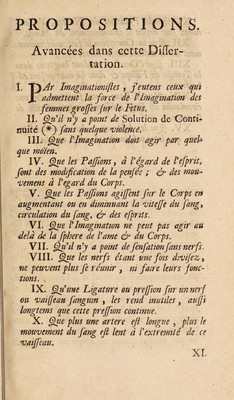 PROPOSITIONS.
Avancées dans cette Disser-
tation.
I. PAr Imaginationistes, j'entens ceux qui
admettent la force de l'imagination des
femmes grosses sur le Fetus.
II. Qu'il n'y a point de Solution de Conti-
nuité (*) sans quelque violence.
III. Que l'Imagination doit agir par quel-
que moïen.
IV. Que les Passions, à l'égard de l'esprit,
sont des modification de la pensée; & des mou-
vemens à l'egard du Corps.
V. Que les Passions agissent sur le Corps en
augmentant ou en diminuant la vitesse du sang,
circulation du sang, & des esprits.
VI. Que l'Imagination ne peut pas agir au
delà de la sphere de l'ame & du Corps.
VII. Qu'il n'y a point de sensation sans nerfs.
VIII. Que les nerfs étant une fois divisez,
ne peuvent plus se réunir, ni faire leurs fonc-
tions.
IX. Qu'une Ligature ou pression sur un nerf
ou vaisseau sanguin, les rend inutiles, aussi
longtems que cette pression continue.
X. Que plus une artere est longue, plus le
mouvement du sang est lent à l'extremité de ce
vaisseau.
XI.